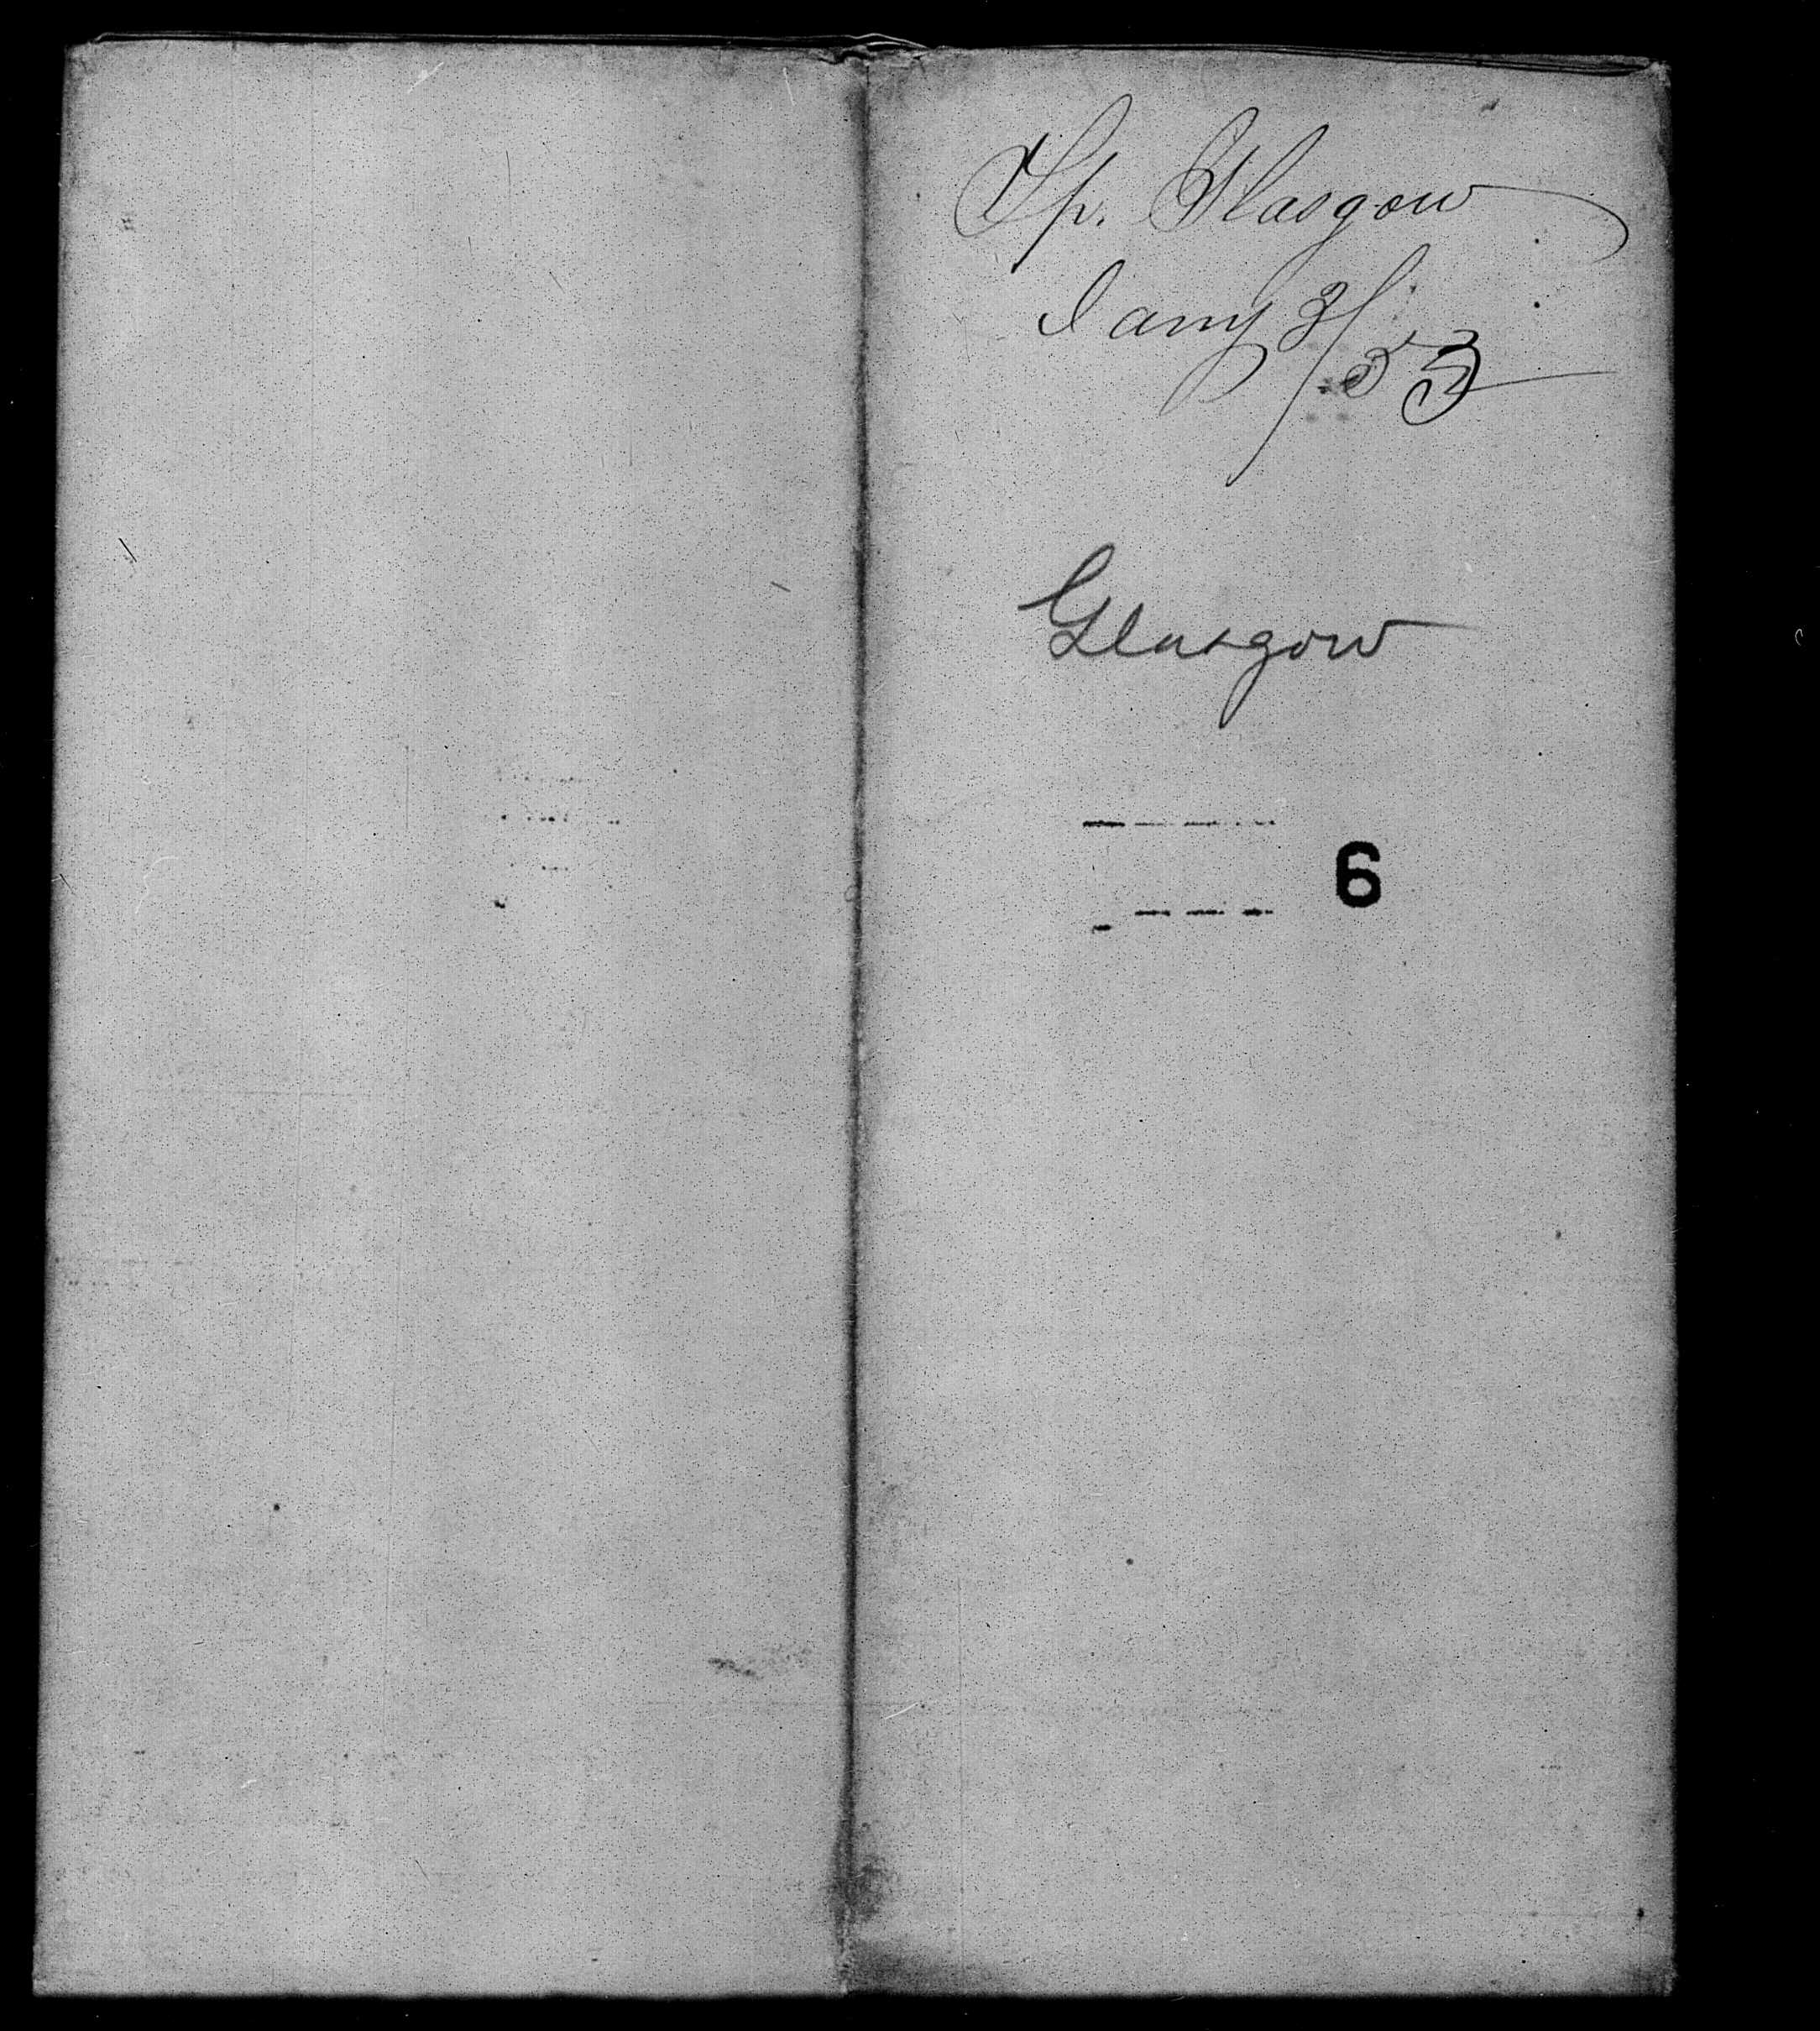 Sp. Glasgow
Jany 3/53
Glasgow
6